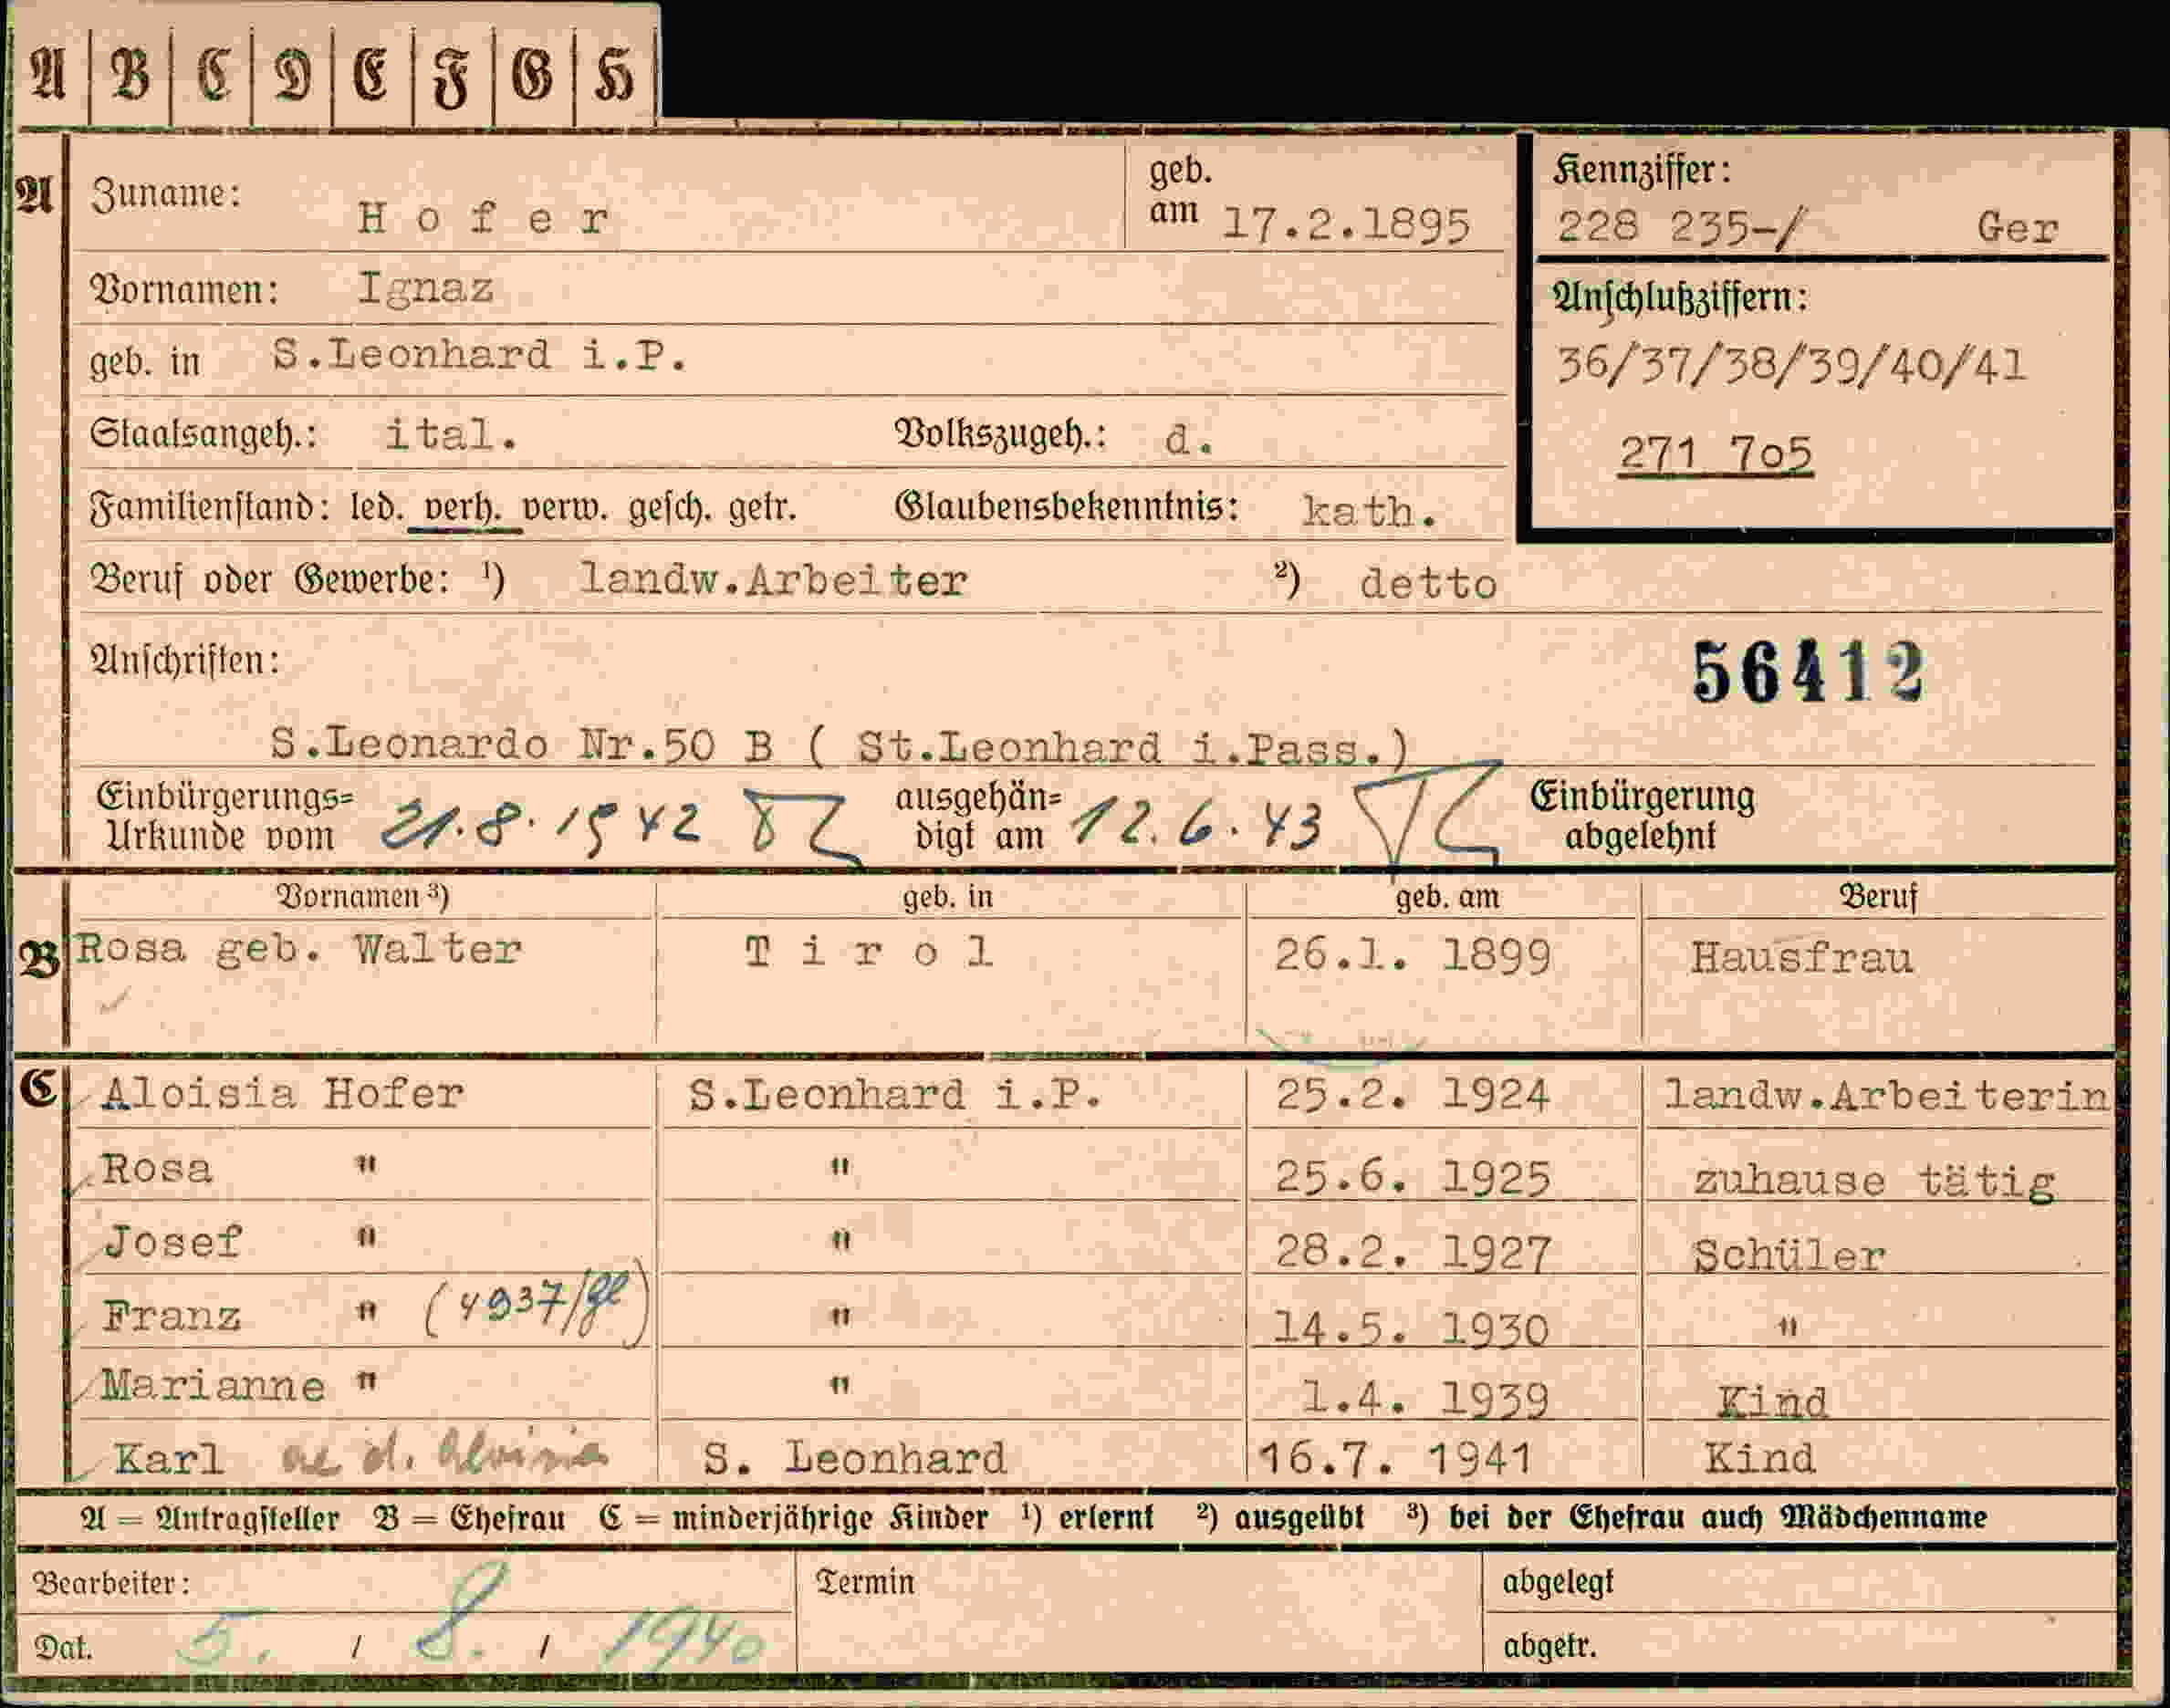 A B C D E F G H
A Zuname: Hofer geb. am 17.2.1895 Kennziffer:
228 235-/ Ger
Vornamen: Ignaz Anschlußziffern:
geb. in S.Leonhard i.P. 36/37/38/39/40/41
Staatsangeh.: ital. Volkszugeh.: d. 271 7o5
Familienstand: led. verh. verw. gesch. getr. Glaubensbekenntnis: kath.
Beruf oder Gewerbe: ¹) landw.Arbeiter ²) detto
Anschriften: 56412
S.Leonardo Nr.50 B ( St.Leonhard i.Pass.)
Einbürgerungs= Urkunde vom 21.8.1942 ausgehän= digt am 12.6.43 Einbürgerung abgelehnt
Vornamen ³) geb. in geb. am Beruf
B Rosa geb. Walter Tirol 26.1. 1899 Hausfrau
C Aloisia Hofer S.Leonhard i.P. 25.2. 1924 landw.Arbeiterin
Rosa " " 25.6. 1925 zuhause tätig
Josef " " 28.2. 1927 Schüler
Franz " (4937/gl) " 14.5. 1930 "
Marianne " " 1.4. 1939 Kind
Karl d. Aloisia S. Leonhard 16.7. 1941 Kind
A = Antragsteller B = Ehefrau C = minderjährige Kinder ¹) erlernt ²) ausgeübt ³) bei der Ehefrau auch Mädchenname
Bearbeiter: Termin abgelegt
Dat. 5. / 8. / 1940 abgetr.